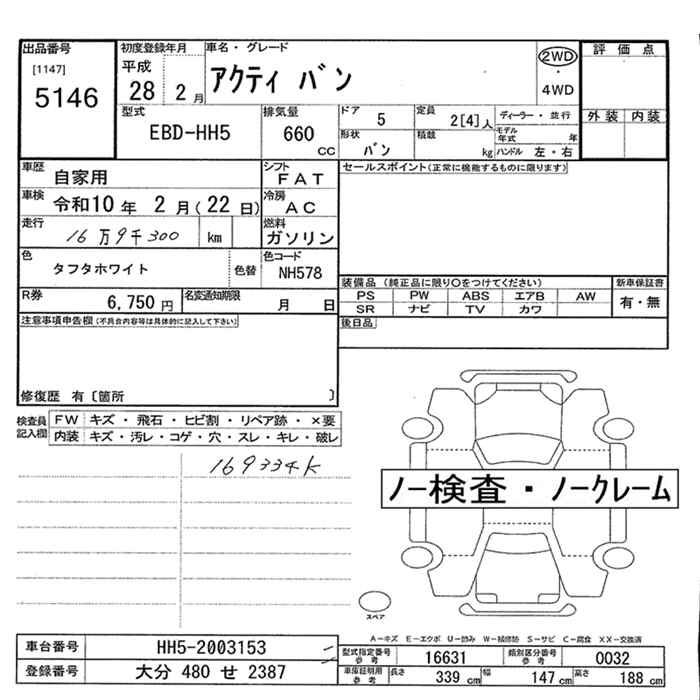 出品番号
[1147]
5146
初度登録年月
平成
28 2 月
車名・グレード
アクティ バン
2WD
・
4WD
評価点
外装 内装
型式
EBD-HH5
排気量
660
CC
ドア
5
定員
2[4]人
ディーラー・並行
形状
バン
積載
kg
モデル年式
年
ハンドル 左・右
車歴
自家用
シフト
FAT
セールスポイント(正常に機能するものに限ります)
車検
令和10 年 2 月( 22 日)
冷房
AC
走行
16万9千300 km
燃料
ガソリン
色
タフタホワイト
色替
色コード
NH578
装備品 (純正品に限り○をつけてください)
新車保証書
PS PW ABS エアB AW
有・無
SR ナビ TV カワ
R券
6,750 円
名変通知期限
月 日
後日品
注意事項申告欄(不具合内容等は具体的に記入して下さい)
修復歴 有〔箇所 〕
検査員
記入欄
FW キズ・飛石・ヒビ割・リペア跡・×要
内装 キズ・汚レ・コゲ・穴・スレ・キレ・破レ
169334K
ノー検査・ノークレーム
スペア
A-キズ E-エクボ U-凹み W-補修跡 S-サビ C-腐食 XX-交換済
車台番号
HH5-2003153
登録番号
大分 480 せ 2387
型式指定番号
参考
16631
類別区分番号
参考
0032
車庫証明用
参考
長さ
339 cm
幅
147 cm
高さ
188 cm